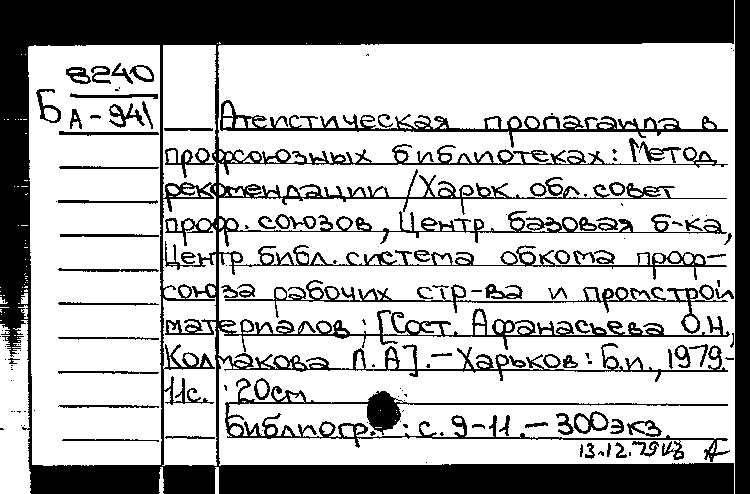 8240
Б А-941
Атеистическая пропаганда в
профсоюзных библиотеках: Метод.
рекомендации / Харьк. обл. совет
проф. союзов, Центр. базовая б-ка,
Центр. библ. система обкома проф-
союза рабочих стр-ва и промстрой
материалов; [Сост. Афанасьева О.Н.,
Колмакова Л.А]. - Харьков: Б.и., 1979.-
11с. ; 20см.
Библиогр.: с. 9-11. - 300экз.
13.12.79